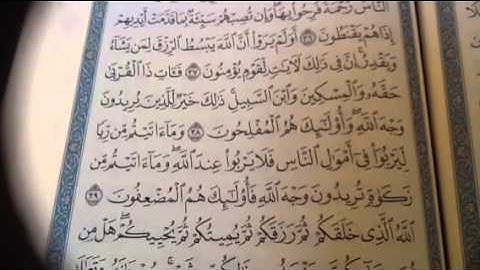 ٱلنَّاسَ رَحْمَةً فَرِحُوا۟ بِهَا وَإِن تُصِبْهُمْ سَيِّئَةٌۢ بِمَا قَدَّمَتْ أَيْدِيهِمْ
إِذَا هُمْ يَقْنَطُونَ ٣٦ أَوَلَمْ يَرَوْا۟ أَنَّ ٱللَّهَ يَبْسُطُ ٱلرِّزْقَ لِمَن يَشَآءُ
وَيَقْدِرُ إِنَّ فِى ذَٰلِكَ لَـَٔايَٰتٍ لِّقَوْمٍ يُؤْمِنُونَ ٣٧ فَـَٔاتِ ذَا ٱلْقُرْبَىٰ
حَقَّهُۥ وَٱلْمِسْكِينَ وَٱبْنَ ٱلسَّبِيلِ ذَٰلِكَ خَيْرٌ لِّلَّذِينَ يُرِيدُونَ
وَجْهَ ٱللَّهِ وَأُو۟لَٰٓئِكَ هُمُ ٱلْمُفْلِحُونَ ٣٨ وَمَآ ءَاتَيْتُم مِّن رِّبًا
لِّيَرْبُوَا۟ فِىٓ أَمْوَٰلِ ٱلنَّاسِ فَلَا يَرْبُوا۟ عِندَ ٱللَّهِ وَمَآ ءَاتَيْتُم مِّن
زَكَوٰةٍ تُرِيدُونَ وَجْهَ ٱللَّهِ فَأُو۟لَٰٓئِكَ هُمُ ٱلْمُضْعِفُونَ ٣٩
ٱللَّهُ ٱلَّذِى خَلَقَكُمْ ثُمَّ رَزَقَكُمْ ثُمَّ يُمِيتُكُمْ ثُمَّ يُحْيِيكُمْ هَلْ مِن